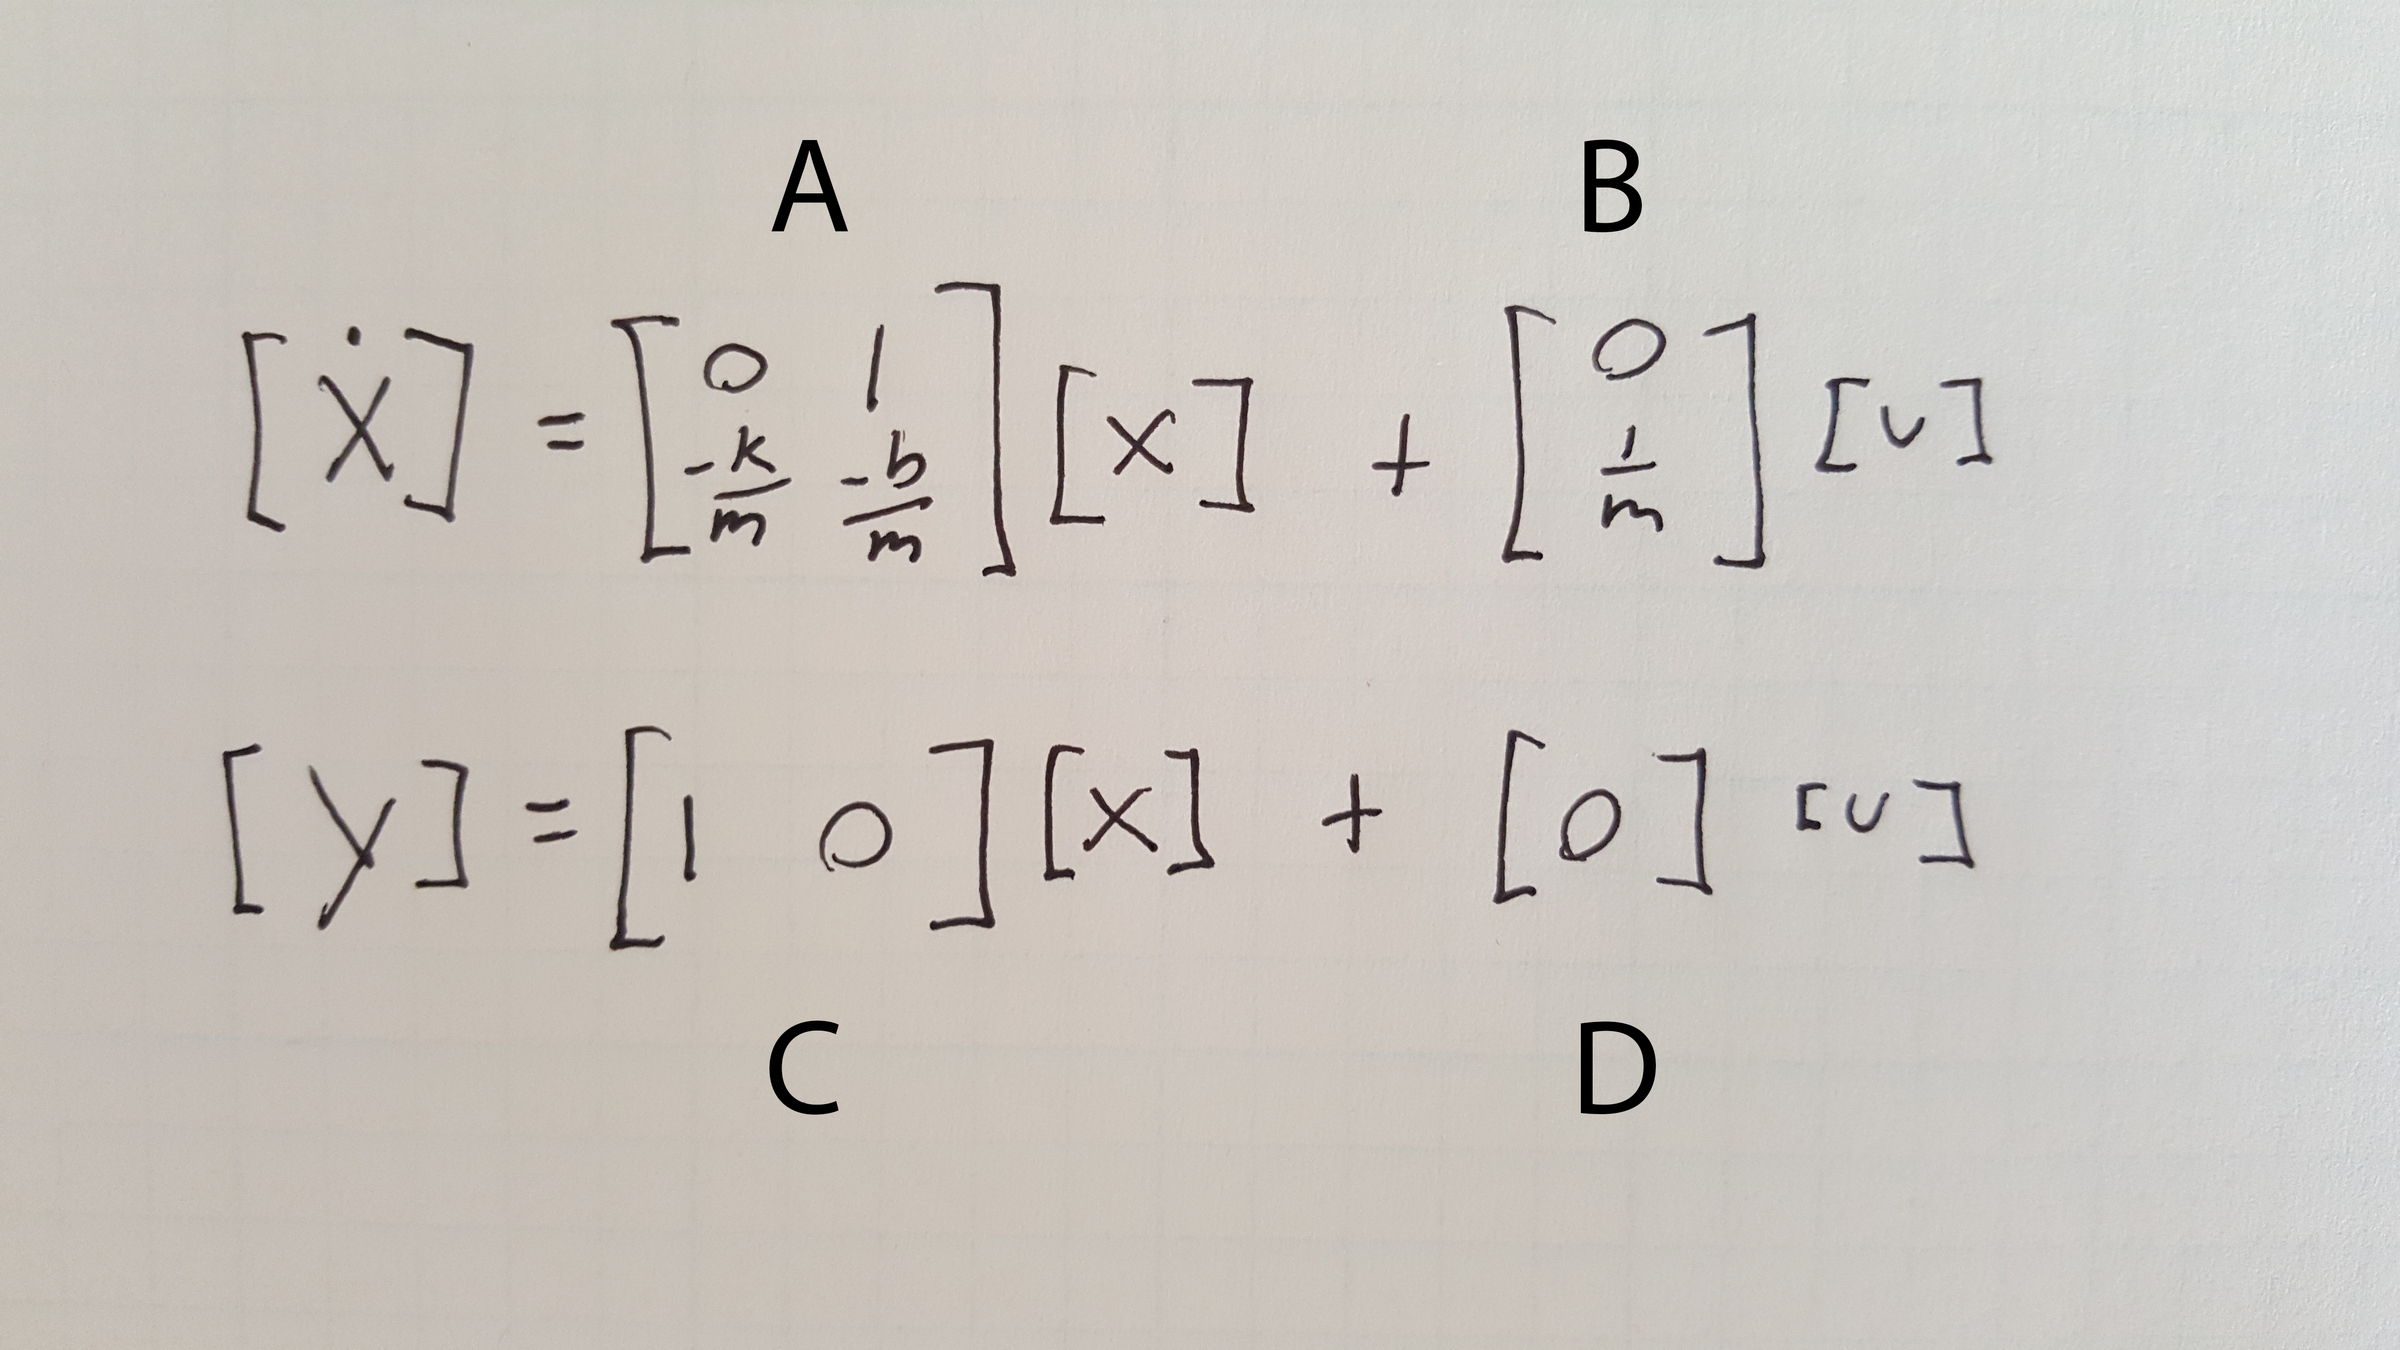 A B
[ẋ] = [0 1 -k/m -b/m] [x] + [0 1/m] [u]
[y] = [1 0] [x] + [0] [u]
C D